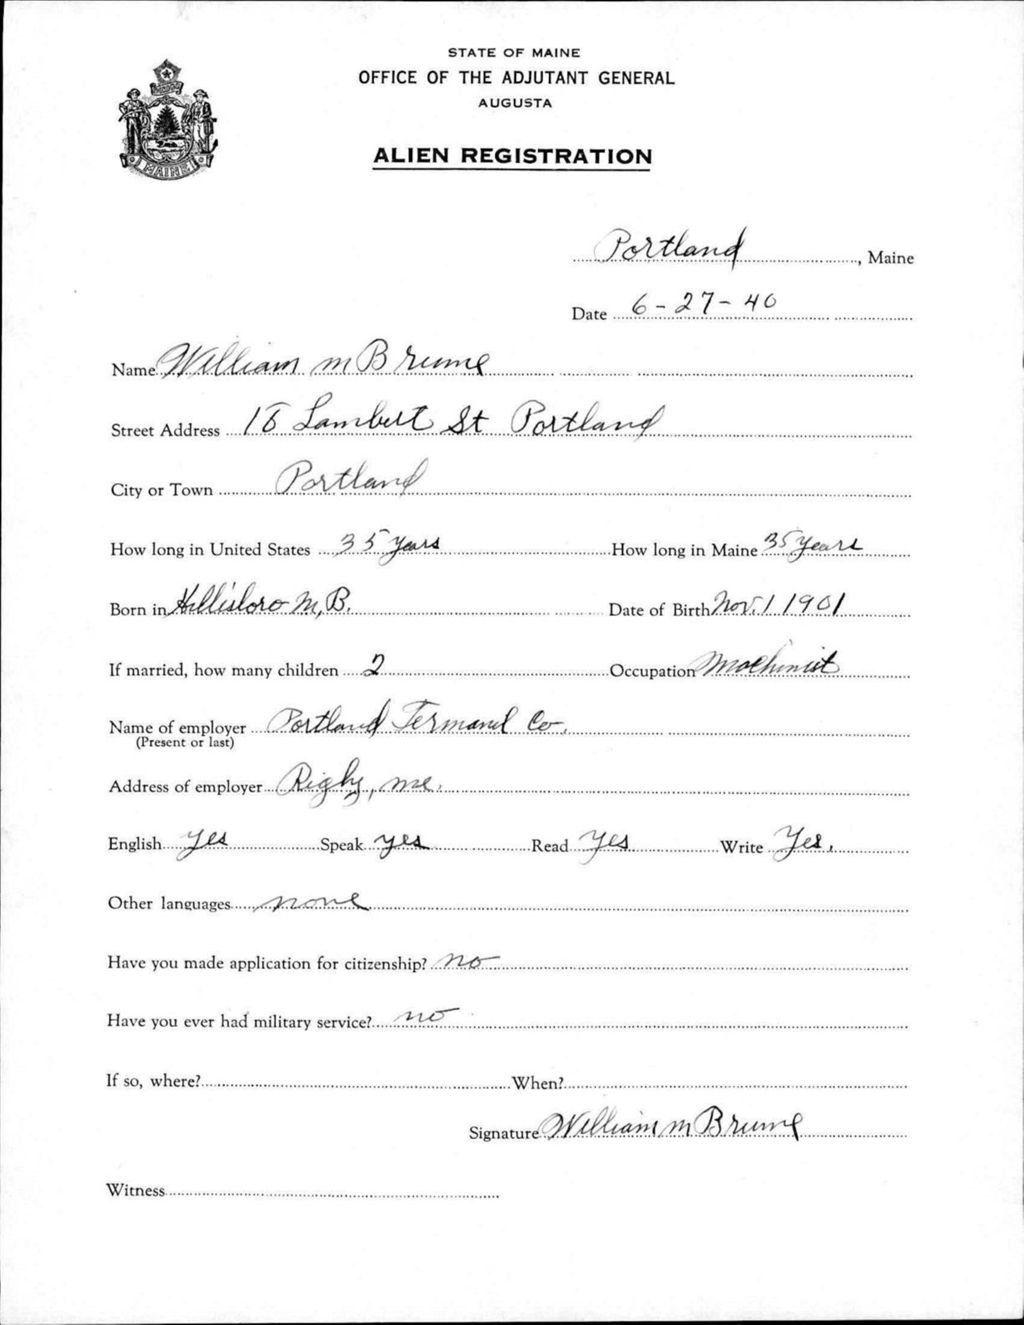 STATE OF MAINE
OFFICE OF THE ADJUTANT GENERAL
AUGUSTA
ALIEN REGISTRATION
MAINE
Portland, Maine
Date 6-27-40
Name William M Brume
Street Address 18 Lambert St Portland
City or Town Portland
How long in United States 35 years How long in Maine 35 years
Born in Hillisboro N, B. Date of Birth Nov. 1 1901
If married, how many children 2 Occupation Machinist
Name of employer Portland Termanel Co.
(Present or last)
Address of employer Rigby, Me.
English Yes Speak yes Read Yes Write Yes.
Other languages none
Have you made application for citizenship? no
Have you ever had military service? no
If so, where? When?
Signature William M Brume
Witness